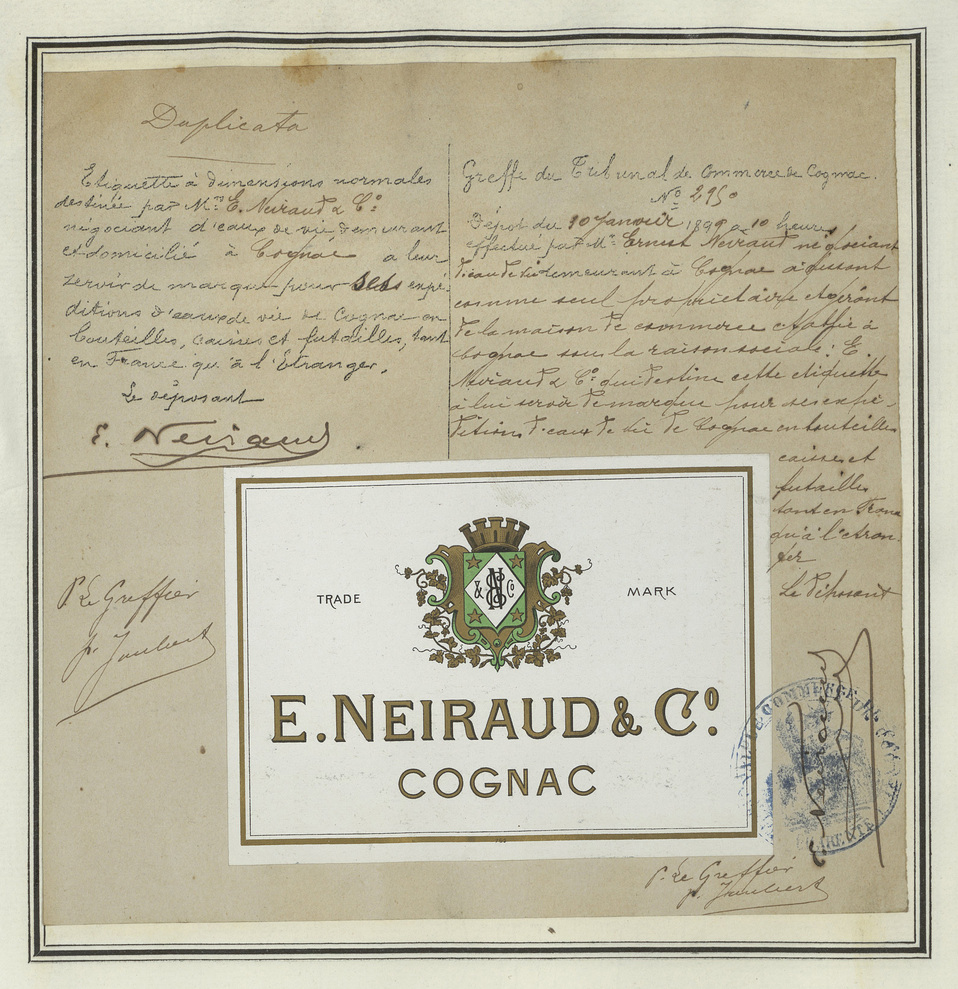 Duplicata
Etiquette à dimensions normales
destinée par Mrs E. Neiraud & Co
négociant d'eaux de vie demeurant
et domicilié à Cognac a leur
servir de marque pour ses expé-
ditions d'eaux de vie de Cognac en
bouteilles, caisses et futailles, tant
en France qu'à l'Etranger.
Le déposant
E. Neiraud
P. Le Greffier
p. Joubert
Greffe du Tribunal de Commerce de Cognac.
No 2950
Dépot du 10 Janvier 1899 à 10 heures
effectué par Mr Ernest Neiraud négociant
d'eau de vie demeurant à Cognac agissant
comme seul propriétaire et gérant
de la maison de commerce établie à
Cognac sous la raison sociale: E.
Neiraud & Co qui destine cette étiquette
à lui servir de marque pour ses expé-
ditions d'eaux de vie de Cognac en bouteilles
caisses et
futailles
tant en France
qu'à l'étran-
ger
Le déposant
E. Neiraud
TRADE MARK
N & Co
E. NEIRAUD & Co
COGNAC
COMMERCE DE
P. Le Greffier
p. Joubert